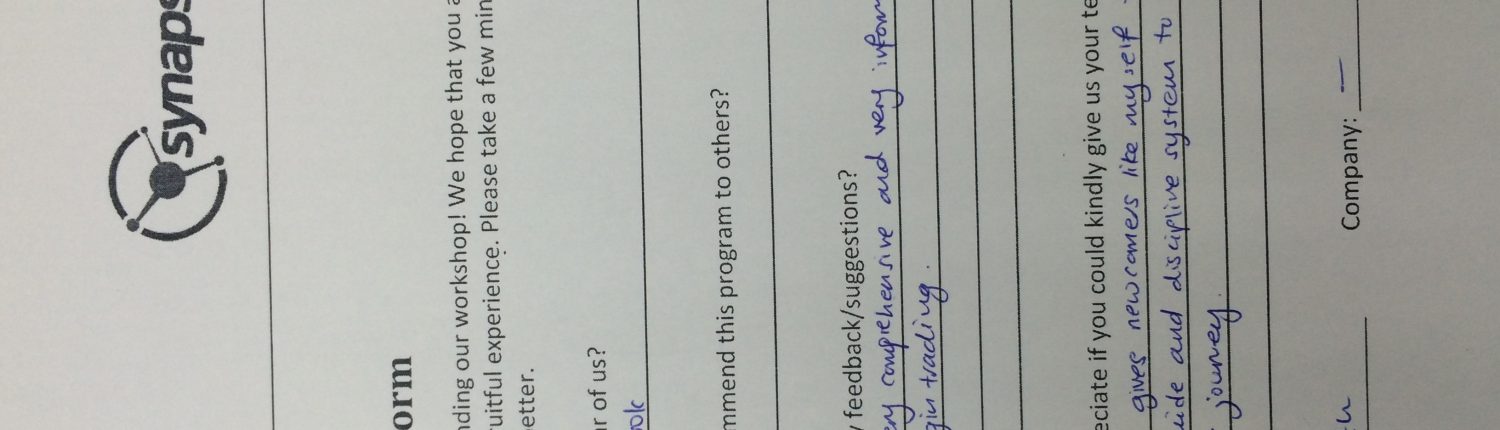 synaps
orm
nding our workshop! We hope that you a
ruitful experience. Please take a few min
etter.
ar of us?
ook
mmend this program to others?
y feedback/suggestions?
ery comprehensive and very inform
gin trading.
eciate if you could kindly give us your te
gives newcomers like myself
uide and discipline system to
journey.
Company: —